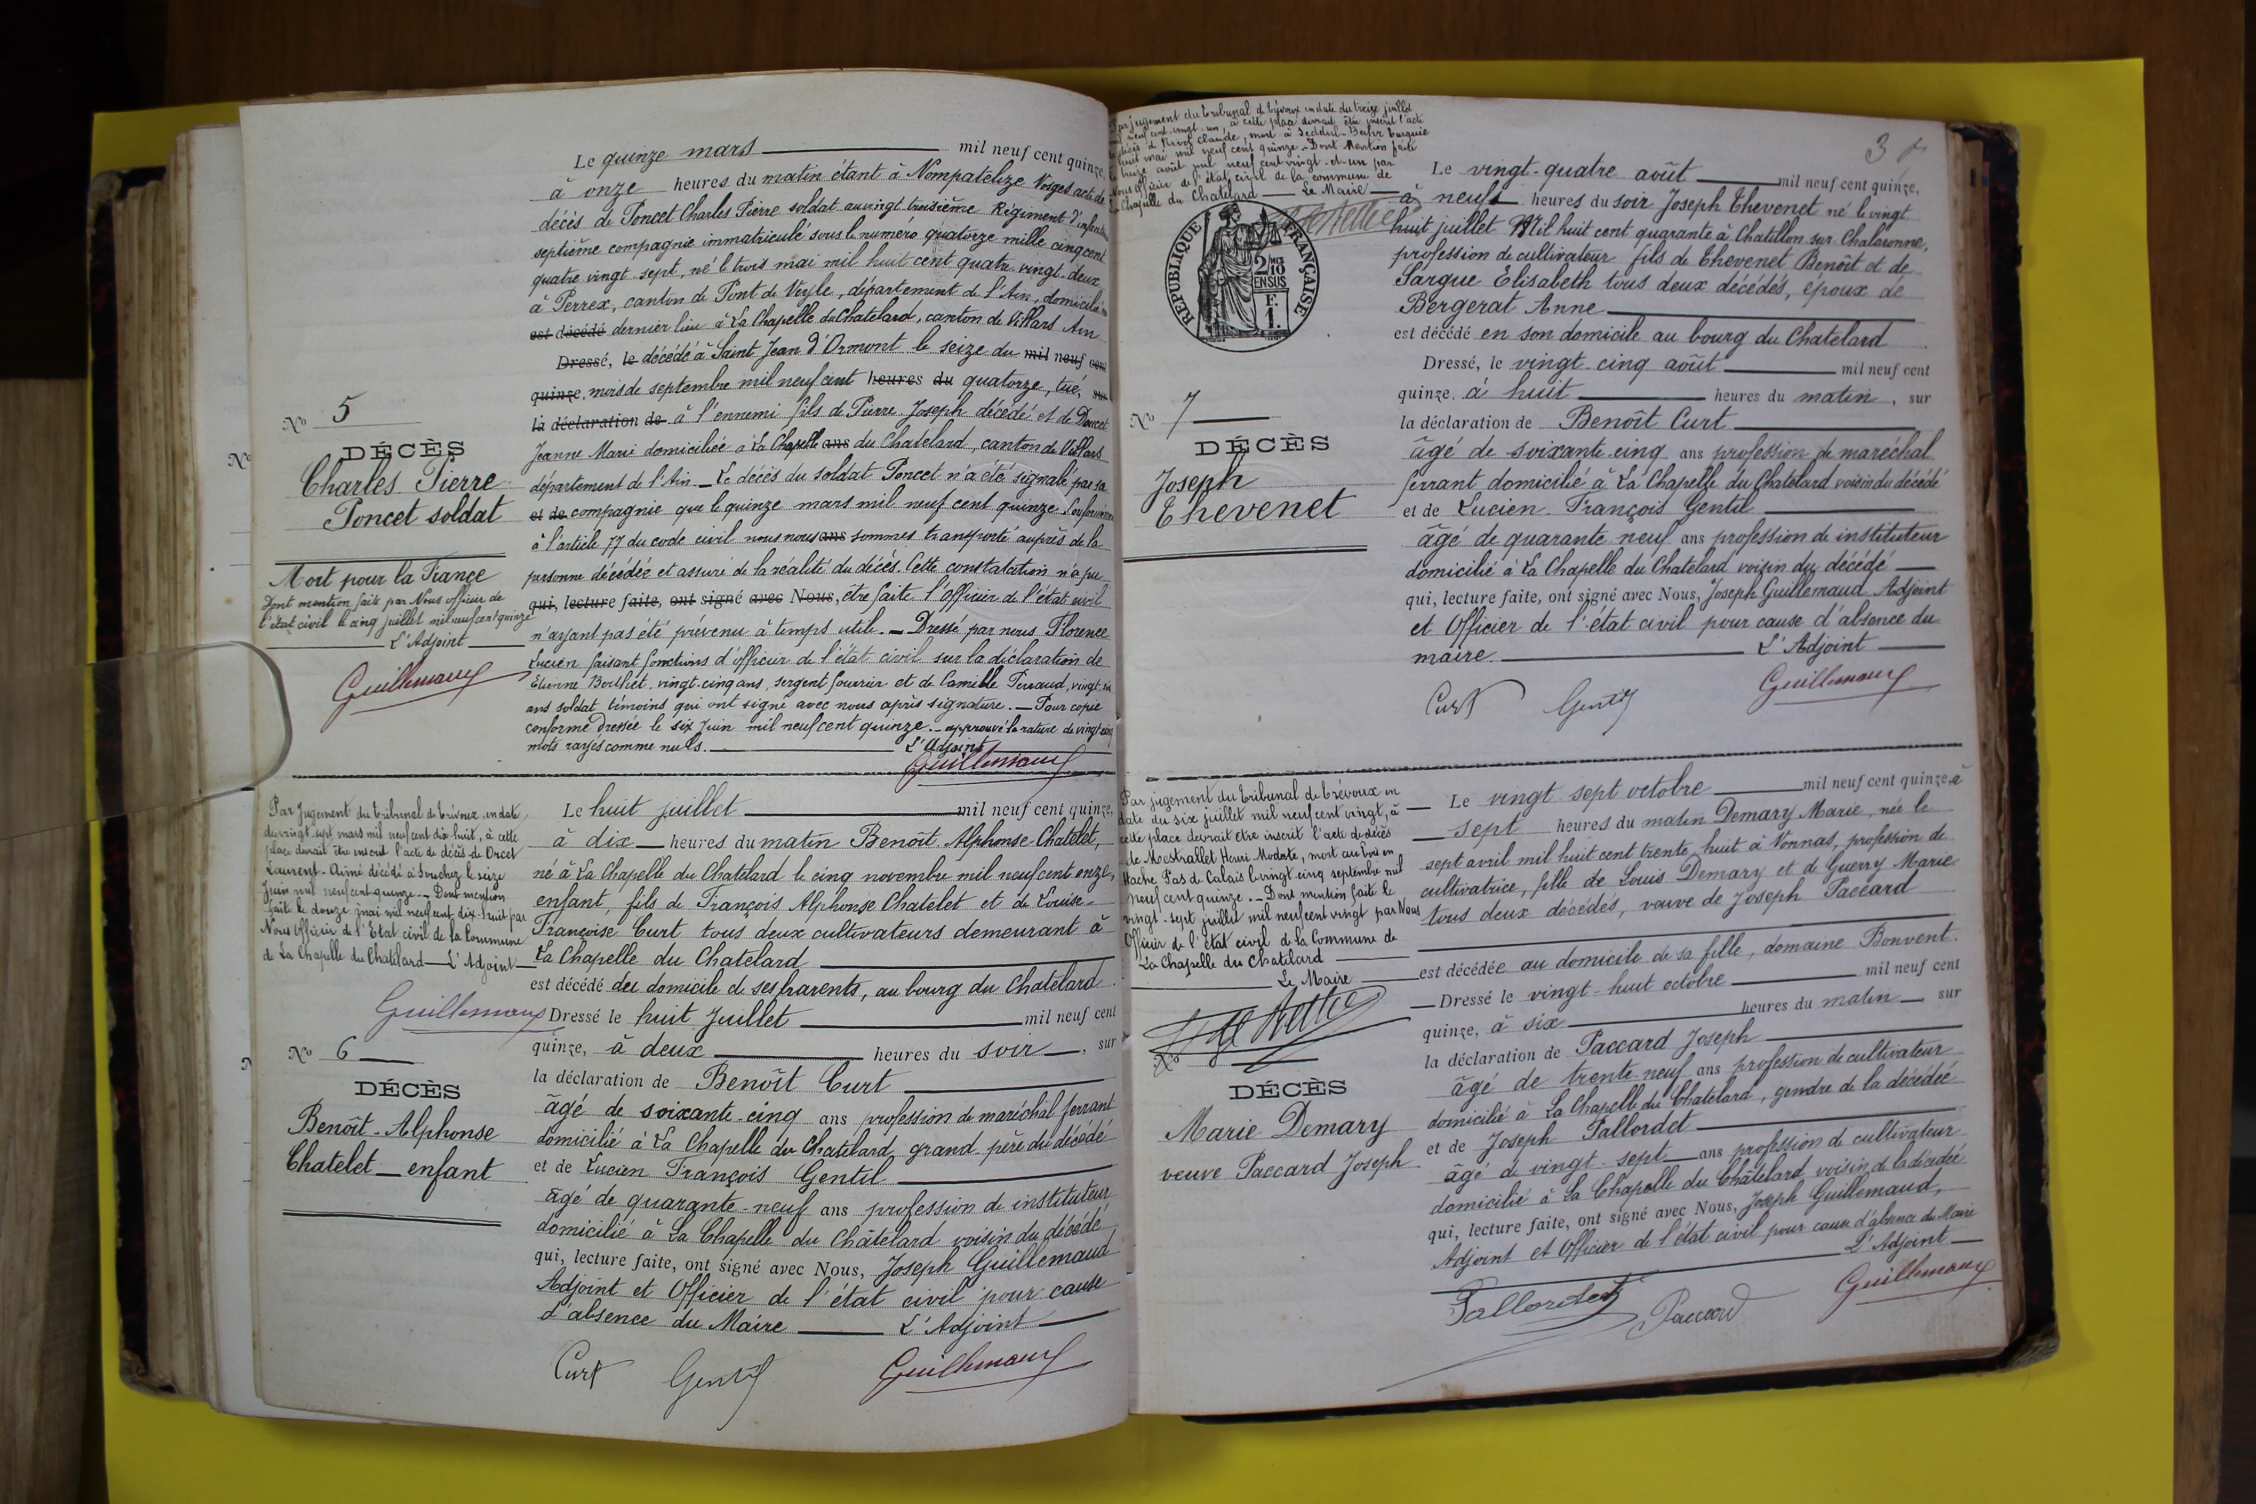 Le quinze mars mil neuf cent quinze,
à onze heures du matin étant à Nompatelize Vosges acte de
décès de Poncet Charles Pierre soldat au vingt troisième Régiment d'infanterie
septième compagnie immatriculé sous le numéro quatorze mille cinq cent
quatre vingt sept, né le trois mai mil huit cent quatre vingt deux
à Perrex, canton de Pont de Veyle, département de l'Ain, domicilié
est décédé dernier lieu à La Chapelle du Chatelard, canton de Villars Ain
Dressé, le décédé à Saint Jean d'Ormont le seize du mil neuf cent
quinze, mois de septembre mil neuf cent heures du quatorze, tué, sur
la déclaration de à l'ennemi fils de Pierre Joseph décédé et de Doucet
Jeanne Marie domiciliée à La Chapelle ans du Chatelard, canton de Villars
département de l'Ain. Le décès du soldat Poncet n'a été signalé par sa
et de compagnie que le quinze mars mil neuf cent quinze. Conformément
à l'article 77 du code civil nous nous ans sommes transporté auprès de la
personne décédée et assuré de la réalité du décès. Cette constatation n'a pu
qui, lecture faite, ont signé avec Nous, être faite l'officier de l'état civil
n'ayant pas été prévenu à temps utile. Dressé par nous Florence
Lucien faisant fonctions d'officier de l'état civil sur la déclaration de
Etienne Bouthet, vingt cinq ans, sergent fourrier et de Camille Perraud, vingt six
ans soldat témoins qui ont signé avec nous après signature. Pour copie
conforme dressée le six juin mil neuf cent quinze. approuvé la rature de vingt cinq
mots rayés comme nuls. L'Adjoint
Guillemaud
No 5
DÉCÈS
Charles Pierre
Poncet soldat
Mort pour la France
Dont mention faite par Nous officier de
l'état civil le cinq juillet mil neuf cent quinze
L'Adjoint
Guillemaud
Par Jugement du tribunal de Trévoux en date
du vingt sept mars mil neuf cent dix huit, à cette
place devrait être inscrit l'acte de décès de Orcet
Laurent Aimé décédé à Souchez le seize
Juin mil neuf cent quinze. Dont mention
faite le douze mai mil neuf cent dix huit par
Nous Officier de l'Etat civil de la Commune
de La Chapelle du Chatelard L'Adjoint
Guillemaud
No 6
DÉCÈS
Benoît-Alphonse
Chatelet enfant
Le huit juillet mil neuf cent quinze,
à dix heures du matin Benoît Alphonse Chatelet,
né à La Chapelle du Chatelard le cinq novembre mil neuf cent onze,
enfant, fils de François Alphonse Chatelet et de Louise-
Françoise Curt tous deux cultivateurs demeurant à
La Chapelle du Chatelard
est décédé au domicile de ses parents, au bourg du Chatelard.
Dressé le huit Juillet mil neuf cent
quinze, à deux heures du soir, sur
la déclaration de Benoît Curt
âgé de soixante-cinq ans profession de maréchal ferrant
domicilié à La Chapelle du Chatelard grand-père du décédé
et de Lucien François Gentil
âgé de quarante-neuf ans profession de instituteur
domicilié à La Chapelle du Châtelard voisin du décédé
qui, lecture faite, ont signé avec Nous, Joseph Guillemaud
Adjoint et Officier de l'état civil pour cause
d'absence du Maire L'Adjoint
Curt Gentil Guillemaud
Par jugement du tribunal de Trévoux en date du treize juillet
mil neuf cent vingt un, à cette place devrait être inscrit l'acte
de décès de Nivol Claude, mort à Seddul-Bahr Turquie
le huit mai mil neuf cent quinze. Dont Mention faite
le treize août mil neuf cent vingt-et-un par
Nous Officier de l'état civil de la commune de
La Chapelle du Chatelard Le Maire
RÉPUBLIQUE FRANÇAISE
2/10
EN SUS
F.
1.
3
No 7
DÉCÈS
Joseph
Thevenet
Le vingt-quatre août mil neuf cent quinze,
à neuf heures du soir Joseph Thevenet né le vingt
huit juillet Mil huit cent quarante à Chatillon sur Chalaronne,
profession de cultivateur fils de Thevenet Benoît et de
Sargue Elisabeth tous deux décédés, époux de
Bergerat Anne
est décédé en son domicile au bourg du Chatelard
Dressé, le vingt-cinq août mil neuf cent
quinze, à huit heures du matin, sur
la déclaration de Benoît Curt
âgé de soixante-cinq ans profession de maréchal
ferrant domicilié à La Chapelle du Chatelard voisin du décédé
et de Lucien François Gentil
âgé de quarante neuf ans profession de instituteur
domicilié à La Chapelle du Chatelard voisin du décédé
qui, lecture faite, ont signé avec Nous, Joseph Guillemaud Adjoint
et Officier de l'état civil pour cause d'absence du
maire. L'Adjoint
Curt Gentil Guillemaud
Par jugement du tribunal de Trévoux en
date du six juillet mil neuf cent vingt, à
cette place devrait être inscrit l'acte de décès
de Mestrallet Henri Modeste, mort au Bois en
Hache Pas de Calais le vingt cinq septembre mil
neuf cent quinze. Dont mention faite le
vingt-sept juillet mil neuf cent vingt par Nous
Officier de l'état civil de la Commune de
La Chapelle du Chatelard
Le Maire
No
DÉCÈS
Marie Demary
veuve Paccard Joseph
Le vingt sept octobre mil neuf cent quinze, à
sept heures du matin Demary Marie, née le
sept avril mil huit cent trente huit à Vonnas, profession de
cultivatrice, fille de Louis Demary et de Guerry Marie
tous deux décédés, veuve de Joseph Paccard
est décédée au domicile de sa fille, domaine Bonvent.
Dressé le vingt-huit octobre mil neuf cent
quinze, à six heures du matin, sur
la déclaration de Paccard Joseph
âgé de trente-neuf ans profession de cultivateur
domicilié à La Chapelle du Chatelard, gendre de la décédée
et de Joseph Pallordet
âgé de vingt-sept ans profession de cultivateur
domicilié à La Chapelle du Châtelard voisin de la décédée
qui, lecture faite, ont signé avec Nous, Joseph Guillemaud,
Adjoint et Officier de l'état civil pour cause d'absence du Maire
L'Adjoint
Pallordet Paccard Guillemaud